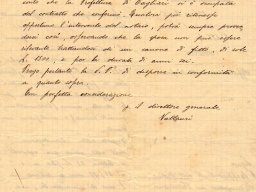 conto che la Prefettura di Cagliari si è occupata
del contratto che conferirà. Qualora poi ritenesse
opportuno l'intervento del
darsi così, osservando che la spesa non può essere
rilevante trattandosi di un canone di fitto, di sole
L. e per la durata di anni sei.
Prego pertanto la S. V. di disporre in conformità
a quanto sopra.
Con perfetta considerazione
p. Il direttore generale